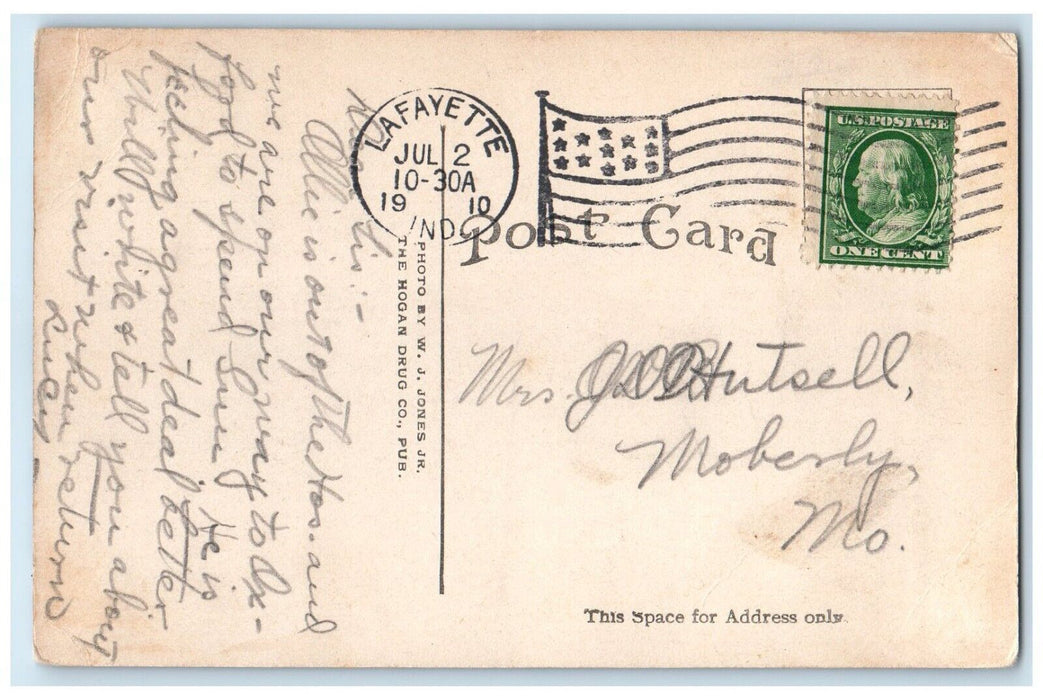 LAFAYETTE
JUL 2
10-30A
1910
IND.
U.S. POSTAGE
ONE CENT
Post Card
PHOTO BY W. J. JONES JR.
THE HOGAN DRUG CO., PUB.
Sis:-
Ollie is out of the Hos. and
we are on our way to Ox-
ford to spend Sun. He is
feeling a great deal better
Will write & tell you about
our visit when return
Mrs. Hutsell,
Moberly,
Mo.
This Space for Address only.